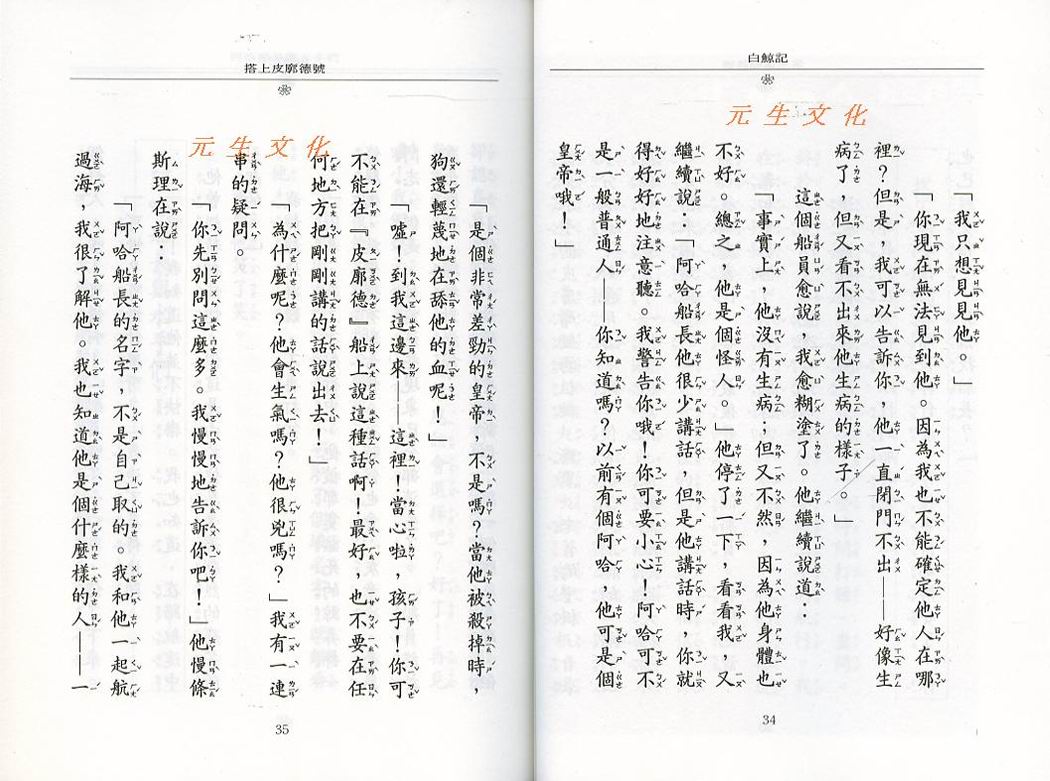 白鯨記
元生文化
「我只想見見他。」
「你現在無法見到他。因為我也不能確定他人在哪
裡？但是，我可以告訴你，他一直閉門不出——好像生
病了，但又看不出來他生病的樣子。」
這個船員愈說，我愈糊塗了。他繼續說道：
「事實上，他沒有生病；但又不然，因為他身體也
不好。總之，他是個怪人。」他停了一下，看看我，又
繼續說：「阿哈船長他很少講話，但是他講話時，你就
得好好地注意聽。我警告你哦！你可要小心！阿哈可不
是一般普通人——你知道嗎？以前有個阿哈，他可是個
皇帝哦！」
34
搭上皮廓德號
元生文化
「是個非常差勁的皇帝，不是嗎？當他被殺掉時，
狗還輕蔑地在舔他的血呢！」
「噓！到我這邊來——這裡！當心啦，孩子！你可
不能在『皮廓德』船上說這種話啊！最好，也不要在任
何地方把剛剛講的話說出去！」
「為什麼呢？他會生氣嗎？他很兇嗎？」我有一連
串的疑問。
「你先別問這麼多。我慢慢地告訴你吧！」他慢條
斯理在說：
「阿哈船長的名字，不是自己取的。我和他一起航
過海，我很了解他。我也知道他是個什麼樣的人——一
35